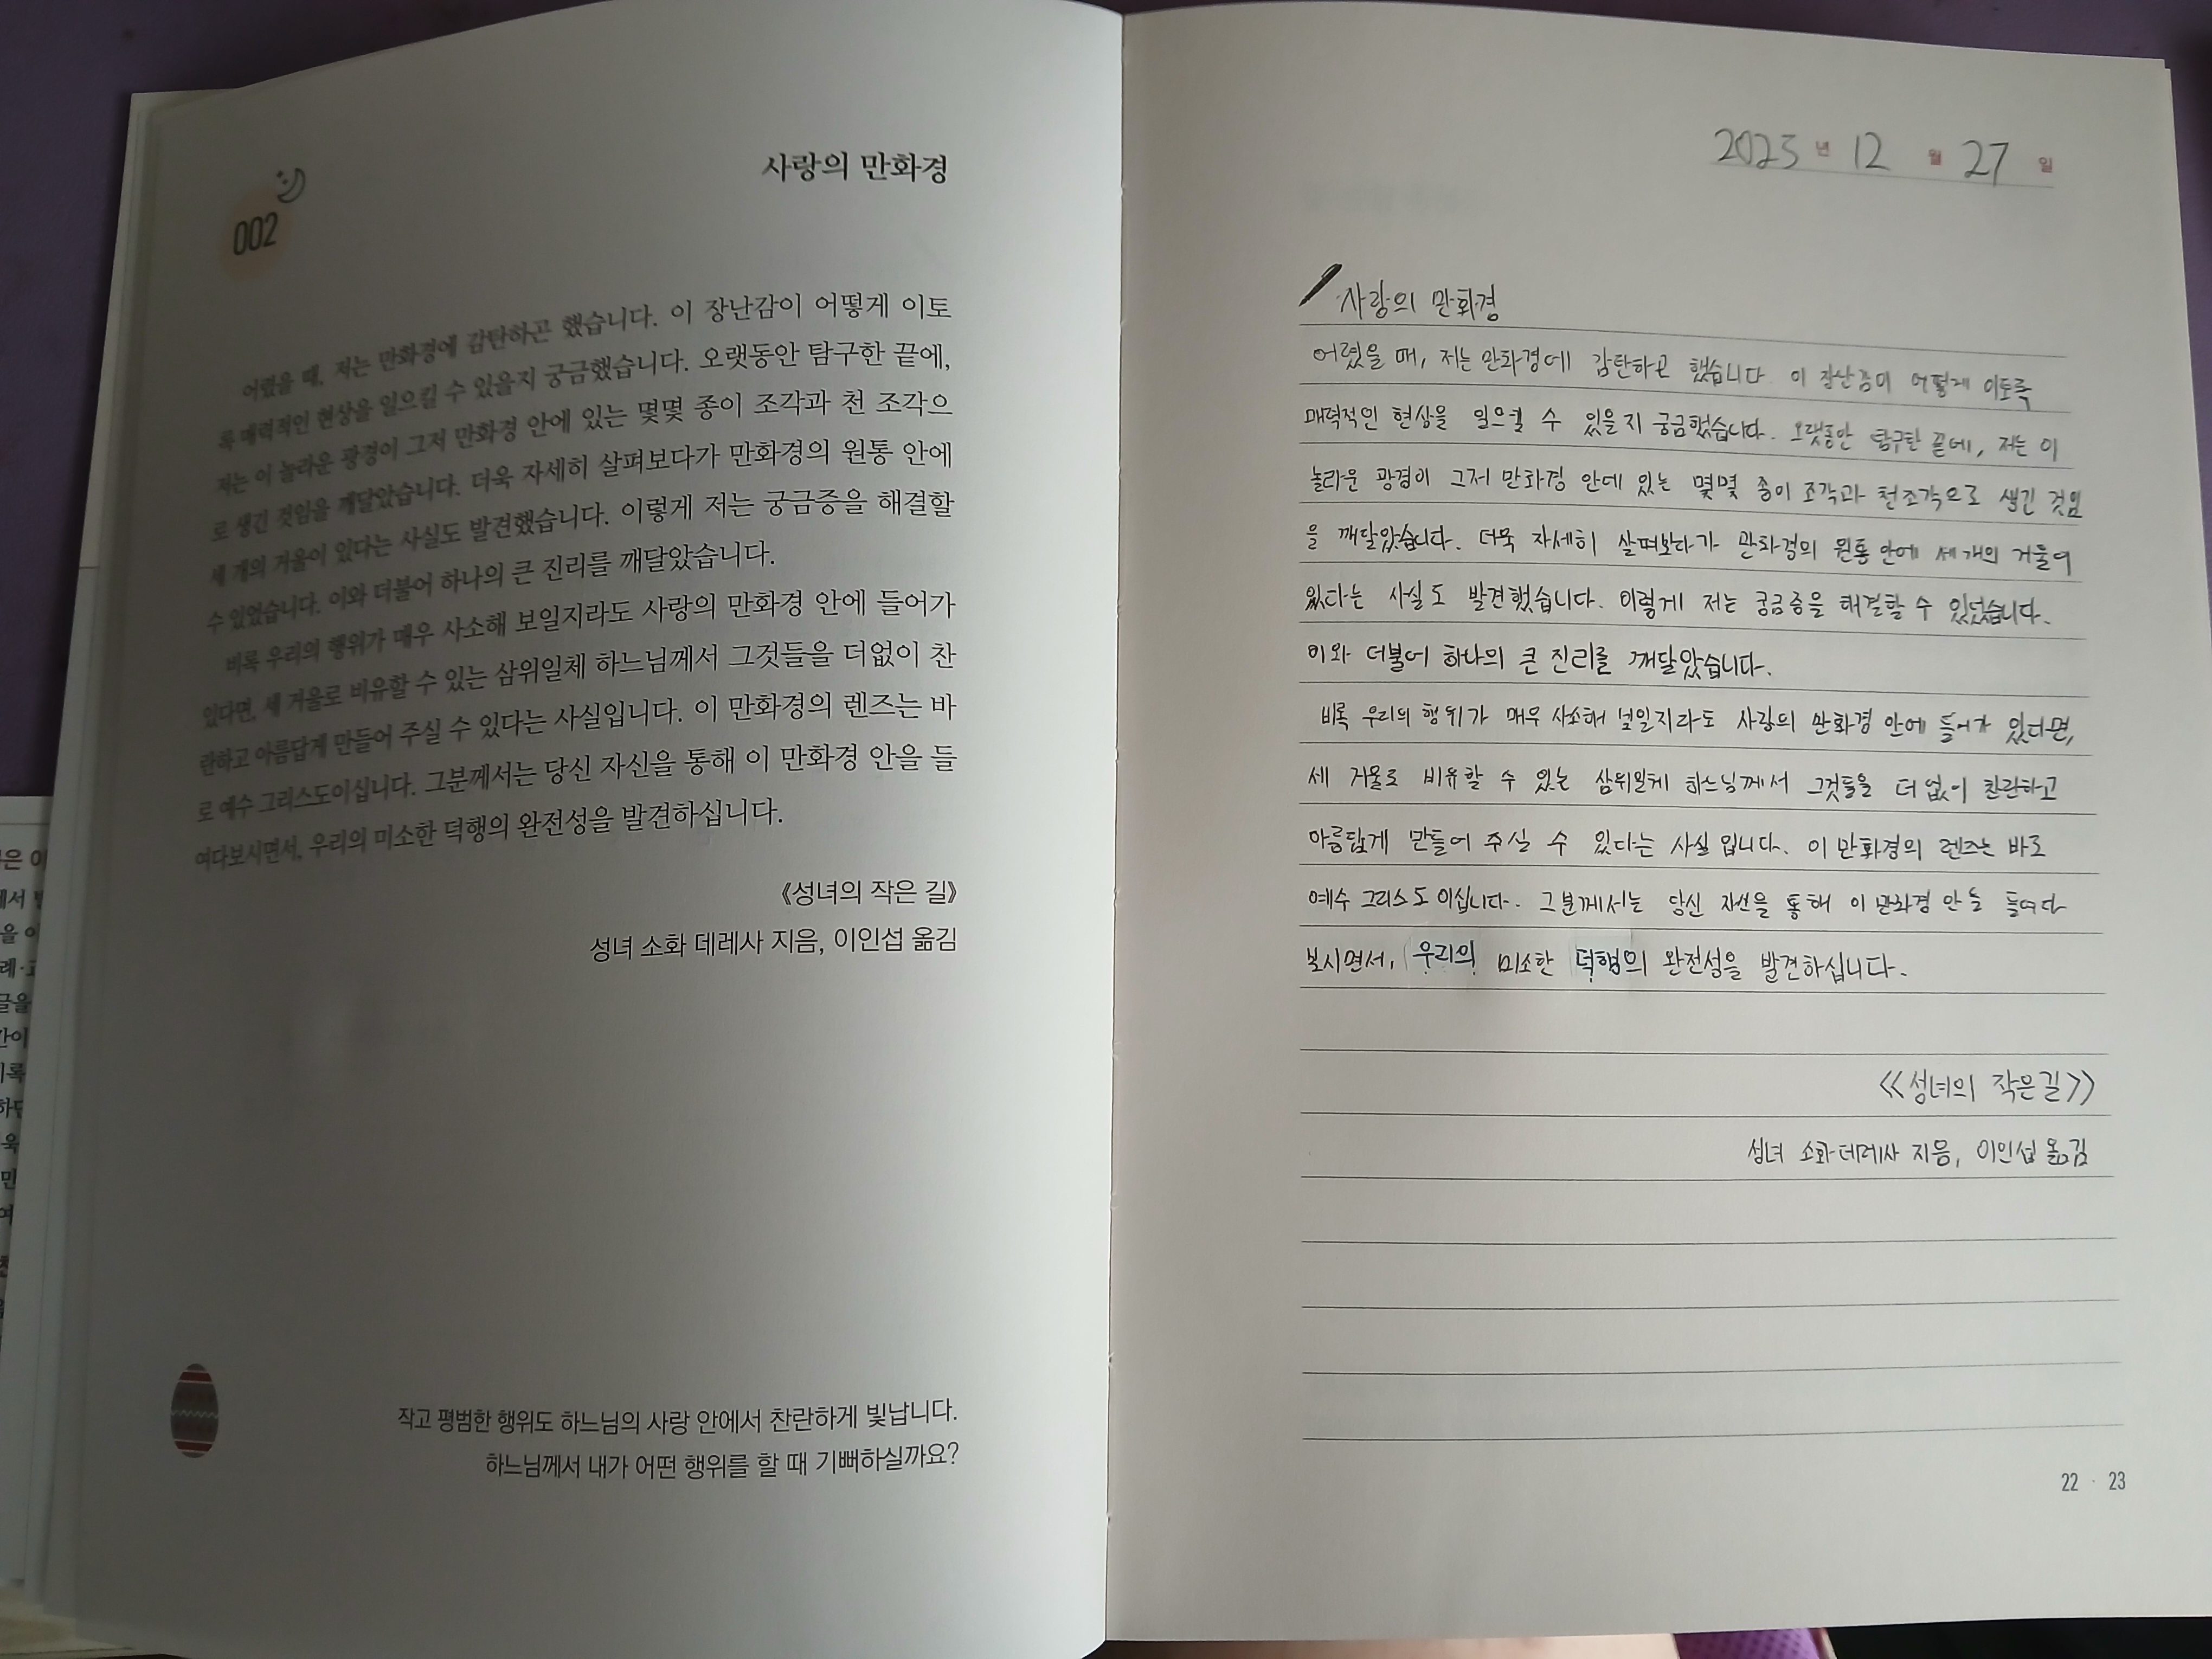 사랑의 만화경
002
어렸을 때, 저는 만화경에 감탄하곤 했습니다. 이 장난감이 어떻게 이토
록 매력적인 현상을 일으킬 수 있을지 궁금했습니다. 오랫동안 탐구한 끝에,
저는 이 놀라운 광경이 그저 만화경 안에 있는 몇몇 종이 조각과 천 조각으
로 생긴 것임을 깨달았습니다. 더욱 자세히 살펴보다가 만화경의 원통 안에
세 개의 거울이 있다는 사실도 발견했습니다. 이렇게 저는 궁금증을 해결할
수 있었습니다. 이와 더불어 하나의 큰 진리를 깨달았습니다.
비록 우리의 행위가 매우 사소해 보일지라도 사랑의 만화경 안에 들어가
있다면, 세 거울로 비유할 수 있는 삼위일체 하느님께서 그것들을 더없이 찬
란하고 아름답게 만들어 주실 수 있다는 사실입니다. 이 만화경의 렌즈는 바
로 예수 그리스도이십니다. 그분께서는 당신 자신을 통해 이 만화경 안을 들
여다보시면서, 우리의 미소한 덕행의 완전성을 발견하십니다.
《성녀의 작은 길》
성녀 소화 데레사 지음, 이인섭 옮김
작고 평범한 행위도 하느님의 사랑 안에서 찬란하게 빛납니다.
하느님께서 내가 어떤 행위를 할 때 기뻐하실까요?
2025년 12월 27일
사랑의 만화경
어렸을 때, 저는 만화경에 감탄하곤 했습니다. 이 장난감이 어떻게 이토록
매력적인 현상을 일으킬 수 있을지 궁금했습니다. 오랫동안 탐구한 끝에, 저는 이
놀라운 광경이 그저 만화경 안에 있는 몇몇 종이 조각과 천조각으로 생긴 것임
을 깨달았습니다. 더욱 자세히 살펴보다가 만화경의 원통 안에 세 개의 거울이
있다는 사실도 발견했습니다. 이렇게 저는 궁금증을 해결할 수 있었습니다.
이와 더불어 하나의 큰 진리를 깨달았습니다.
비록 우리의 행위가 매우 사소해 보일지라도 사랑의 만화경 안에 들어가 있다면,
세 거울로 비유할 수 있는 삼위일체 하느님께서 그것들을 더없이 찬란하고
아름답게 만들어 주실 수 있다는 사실입니다. 이 만화경의 렌즈는 바로
예수 그리스도이십니다. 그분께서는 당신 자신을 통해 이 만화경 안을 들여다
보시면서, 우리의 미소한 덕행의 완전성을 발견하십니다.
<<성녀의 작은 길>>
성녀 소화 데레사 지음, 이인섭 옮김
22 · 23